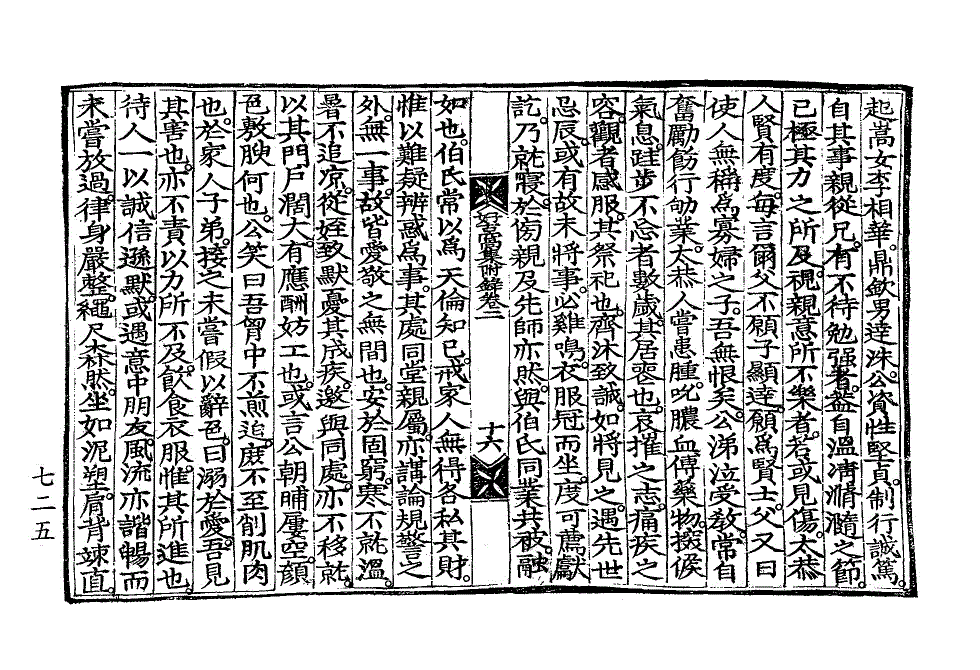 起嵩女李相華鼎歛男達洙公資性堅貞制行誠篤
自其事親從兄有不待勉强者盖自溫凊滫瀡之節
已極其力之所及視親意所不樂者若或見傷太恭
人賢有度每言爾父不願子顯達願爲賢士父又曰
使人無稱爲寡婦之子吾無恨矣公涕泣受敎常自
奮勵飭行劬業太恭人嘗患腫吮膿血傅藥物㨾候
氣息跬步不忘者數歲其居喪也哀摧之志痛疾之
容觀者感服其祭祀也齊沐致誠如將見之遇先世
忌辰或有故未將事必雞鳴衣服冠而坐度可薦獻
訖乃就寢於傍親及先師亦然與伯氏同業共被融
好嵩集附錄卷三
十六
如也伯氏常以爲天倫知己戒家人無得各私其財
惟以難疑辨惑爲事其處同堂親屬亦講論規警之
外無一事故皆愛敬之無間也安於固窮寒不就溫
暑不追凉從姪致默憂其成疾邀與同處亦不移就
以其門戶濶大有應酬妨工也或言公朝晡屢空顔
色敷腴何也公笑曰吾胷中不煎迫庶不至削肌肉
也於家人子弟接之未嘗假以辭色曰溺於愛吾見
其害也亦不責以力所不及飮食衣服惟其所進也
待人一以誠信遜默或遇意中朋友風流亦諧暢而
未嘗放過律身嚴整繩尺森然坐如泥塑肩背竦直
七二五